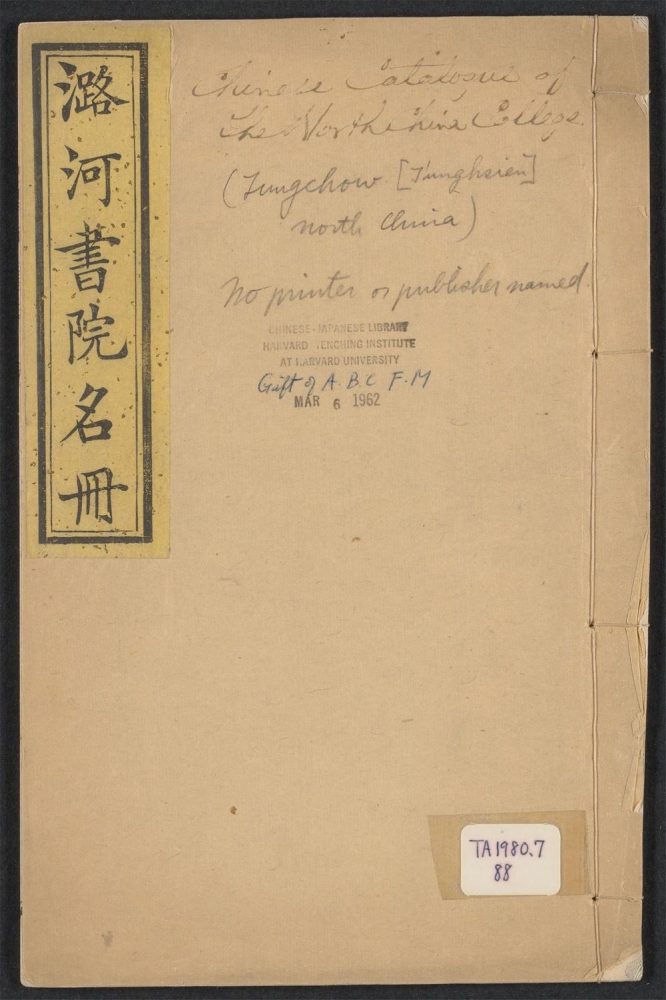 潞河書院名冊
Chinese Catalogue of
the North China College.
(Tungchow [T'unghsien]
north China)
No printer or publisher named.
CHINESE-JAPANESE LIBRARY
HARVARD YENCHING INSTITUTE
AT HARVARD UNIVERSITY
Gift of A. B. C. F. M
MAR 6 1962
TA 1980.7
88